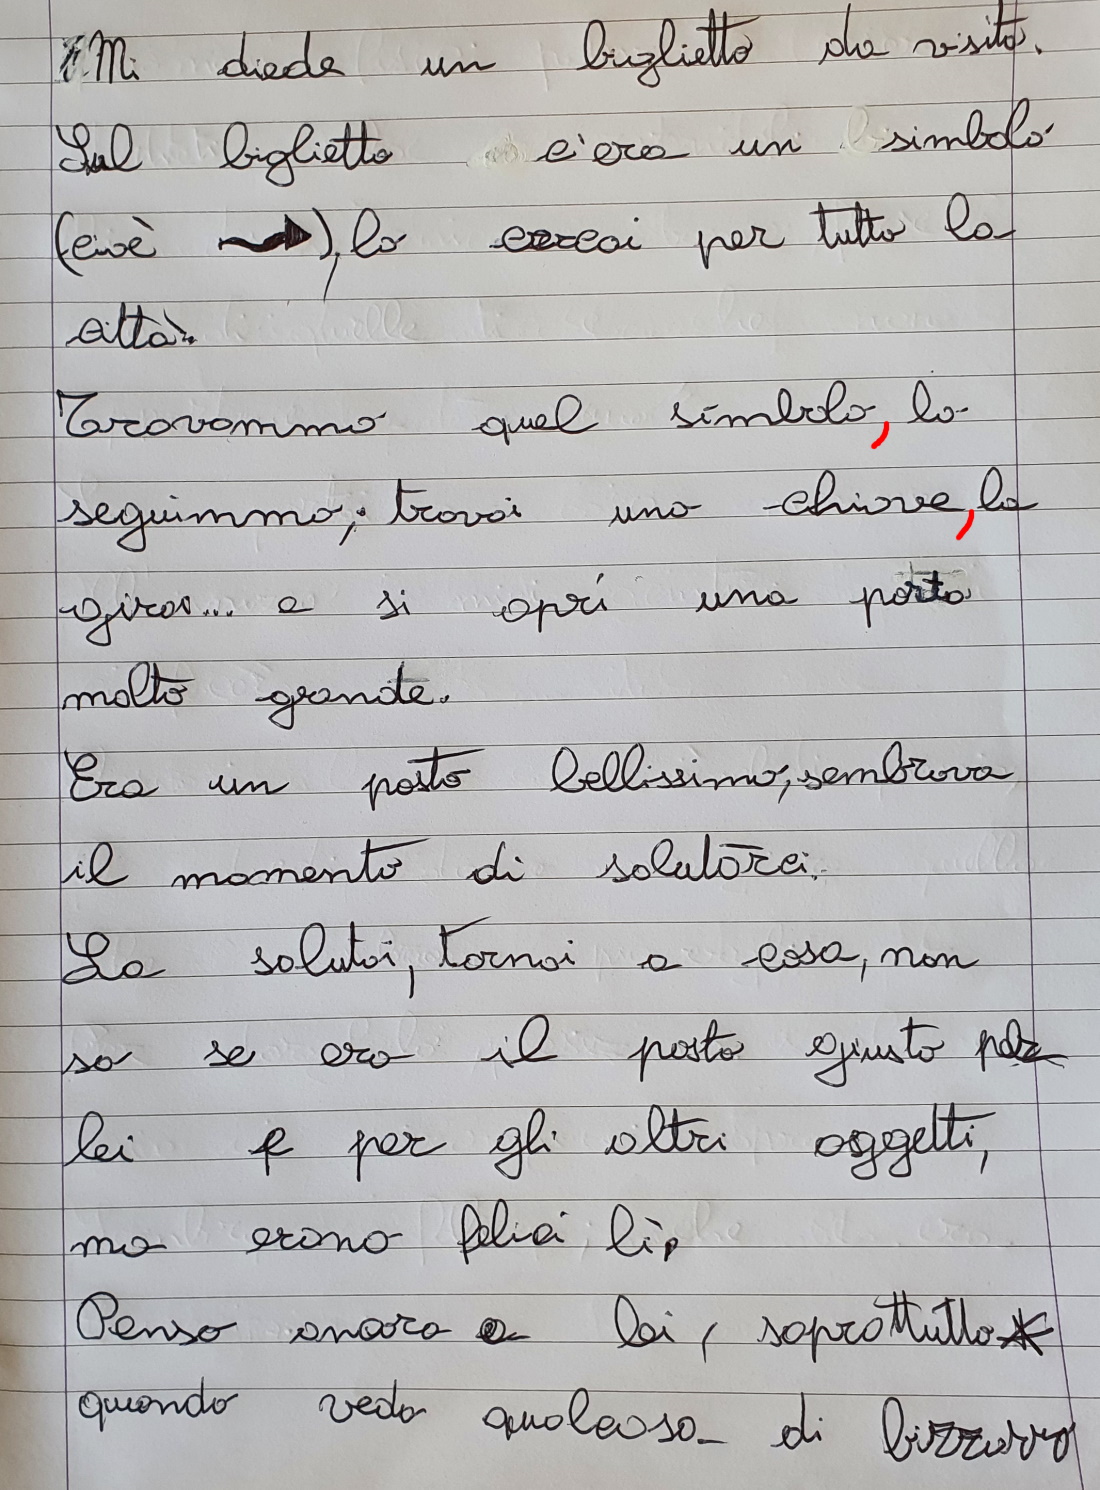 Mi diede un biglietto da visita.
Sul biglietto c'era un simbolo
(cioè ), lo cercai per tutta la
città.
Trovammo quel simbolo, lo
seguimmo; trovai una chiave, la
girai... e si aprí una porta
molto grande.
Era un posto bellissimo, sembrava
il momento di salutarci.
La salutai, tornai a casa, non
so se era il posto giusto per
lei e per gli altri oggetti,
ma erano felici lì.
Penso ancora a lei, soprattutto
quando vedo qualcosa di bizzarro